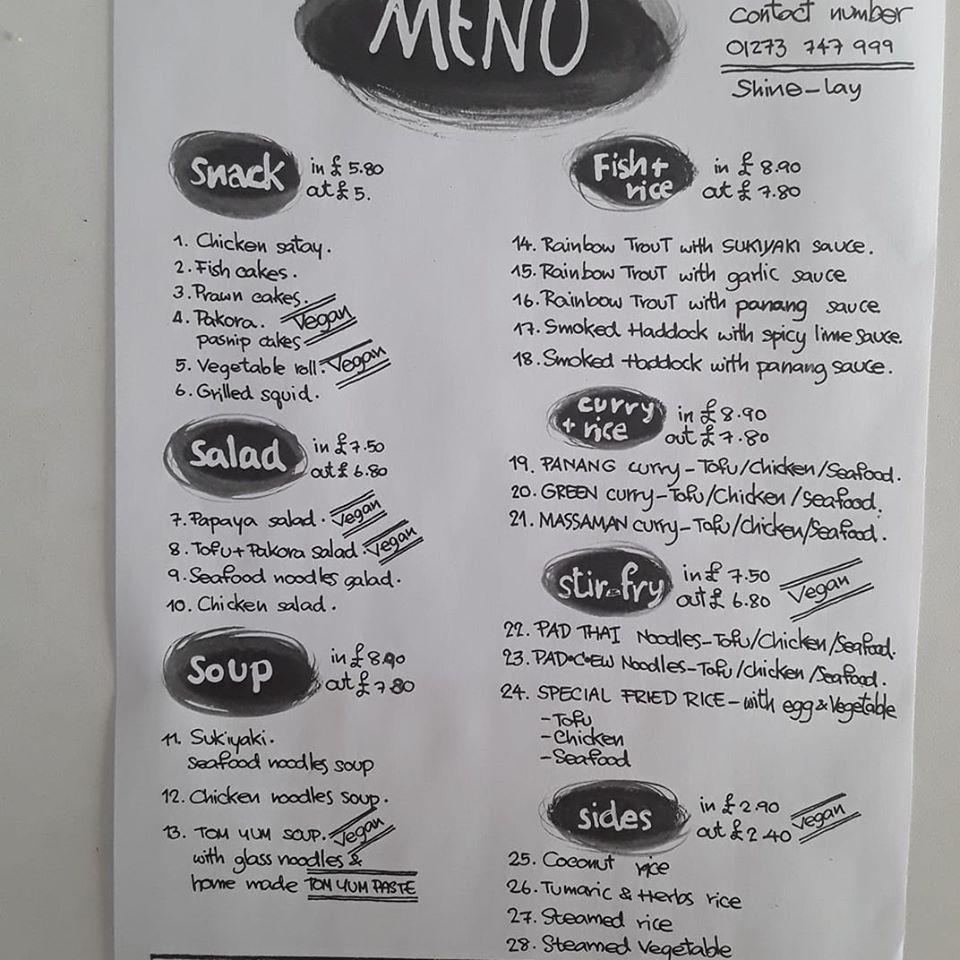 MENU
Contact number
01273 747 999
Shine-Lay
Snack in £ 5.80
at £ 5.
1. Chicken satay.
2. Fish cakes.
3. Prawn cakes.
4. Pakora. Vegan
pasnip cakes
5. Vegetable roll. Vegan
6. Grilled squid.
Salad in £ 7.50
at £ 6.80
7. Papaya salad. Vegan
8. Tofu + Pakora Salad. Vegan
9. Seafood noodles galad.
10. Chicken salad.
Soup in £ 8.90
at £ 7.80
11. Sukiyaki.
Seafood noodles soup
12. Chicken noodles soup.
13. TOM YUM SOUP. Vegan
with glass noodles &
home made TOM YUM PASTE
Fish + in £ 8.90
rice at £ 7.80
14. Rainbow TrouT with SUKIYAKI sauce.
15. Rainbow TrouT with garlic sauce
16. Rainbow TrouT with panang sauce
17. Smoked Haddock with spicy lime sauce.
18. Smoked Haddock with panang sauce.
curry in £ 8.90
+ rice out £ 7.80
19. PANANG curry - Tofu/Chicken/Seafood.
20. GREEN curry - Tofu/Chicken/Seafood.
21. MASSAMAN curry - Tofu/chicken/Seafood.
stir-fry in £ 7.50 Vegan
out £ 6.80
22. PAD THAI Noodles - Tofu/Chicken/Seafood.
23. PAD•C•EW Noodles - Tofu/chicken/Seafood.
24. SPECIAL FRIED RICE - with egg & Vegetable
- Tofu
- Chicken
- Seafood
sides in £ 2.90 Vegan
out £ 2.40
25. Coconut rice
26. Tumaric & Herbs rice
27. Steamed rice
28. Steamed Vegetable